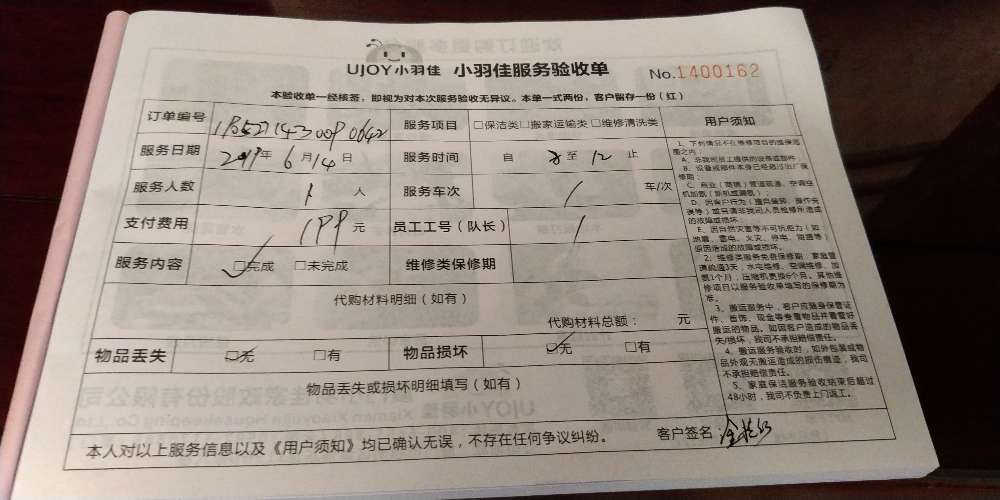 UJOY小羽佳 小羽佳服务验收单 No.1400162
本验收单一经核签，即视为对本次服务验收无异议。本单一式两份，客户留存一份（红）
订单编号 服务项目 □保洁类□搬家运输类□维修清洗类 用户须知
服务日期 2019年6月14日 服务时间 自8至12止
服务人数 1人 服务车次 / 车/次
支付费用 199元 员工工号（队长） /
服务内容 □完成 □未完成 维修类保修期
代购材料明细（如有）
代购材料总额： 元
物品丢失 □无 □有 物品损坏 □无 □有
物品丢失或损坏明细填写（如有）
本人对以上服务信息以及《用户须知》均已确认无误，不存在任何争议纠纷。 客户签名：
1、下列情况不在维修项目的维保范
围之内：
A、非我司员工提供的设备或部件
B、设备或部件本身已经超过出厂保
修期；
D、因客户行为
或另请非我司人员检修所造成
的故障或损坏；
E、因自然灾害等不可抗拒力（如：
地震、雷电、火灾、停电、
原因造成的故障或损坏。
2、维修类服务免费保修期：家庭管
道疏通3天，水电维修、空调维修、加
氨1个月，压缩机更换6个月。其他维
修项目以服务验收单填写的保修期为
准。
3、搬运服务中，客户应随身保管证
件、首饰、现金等贵重物品并看管好
搬运的物品。如因客户造成的物品丢
失/损坏，我司不承担赔偿责任。
4、搬运服务验收时，如外包装或物
品外观无搬运造成的损伤痕迹，我司
不承担赔偿责任。
5、家庭保洁服务验收结束后超过
48小时，我司不负责上门返工。